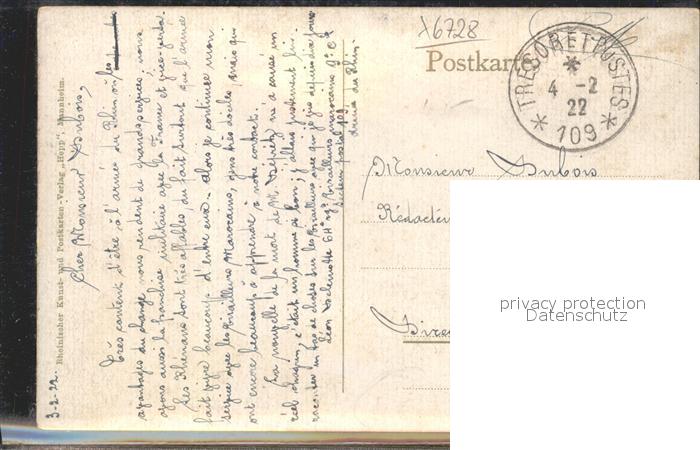 x6728
Postkarte
TRESOR ET POSTES
*
4 -2
22
* 109 *
Monsieur Dubois
Rédacte
Direc
privacy protection
Datenschutz
Rheinischer Kunst- und Postkarten-Verlag „Hepp", Mannheim.
3-2-22.
Cher Monsieur Dubois,
Très content d'être à l'armée du Rhin où les
avantages du change nous rendent de grands services, nous
avons aussi la franchise militaire avec la France et vice-versa.
Les Rhénans sont très affables, du fait surtout que l'armée
fait vivre beaucoup d'entre eux. Alors je continue mon
service avec les tirailleurs Marocains, gens très dociles mais qui
ont encore beaucoup à apprendre à notre contact.
La nouvelle de la mort de M. m'a causé un
réel chagrin, c'était un homme si bon; j'allais justement lui
raconter un tas de choses sur les tirailleurs avec qui je vis
Léon Delemotte tirailleurs marocains
Secteur postal 109
armée du Rhin